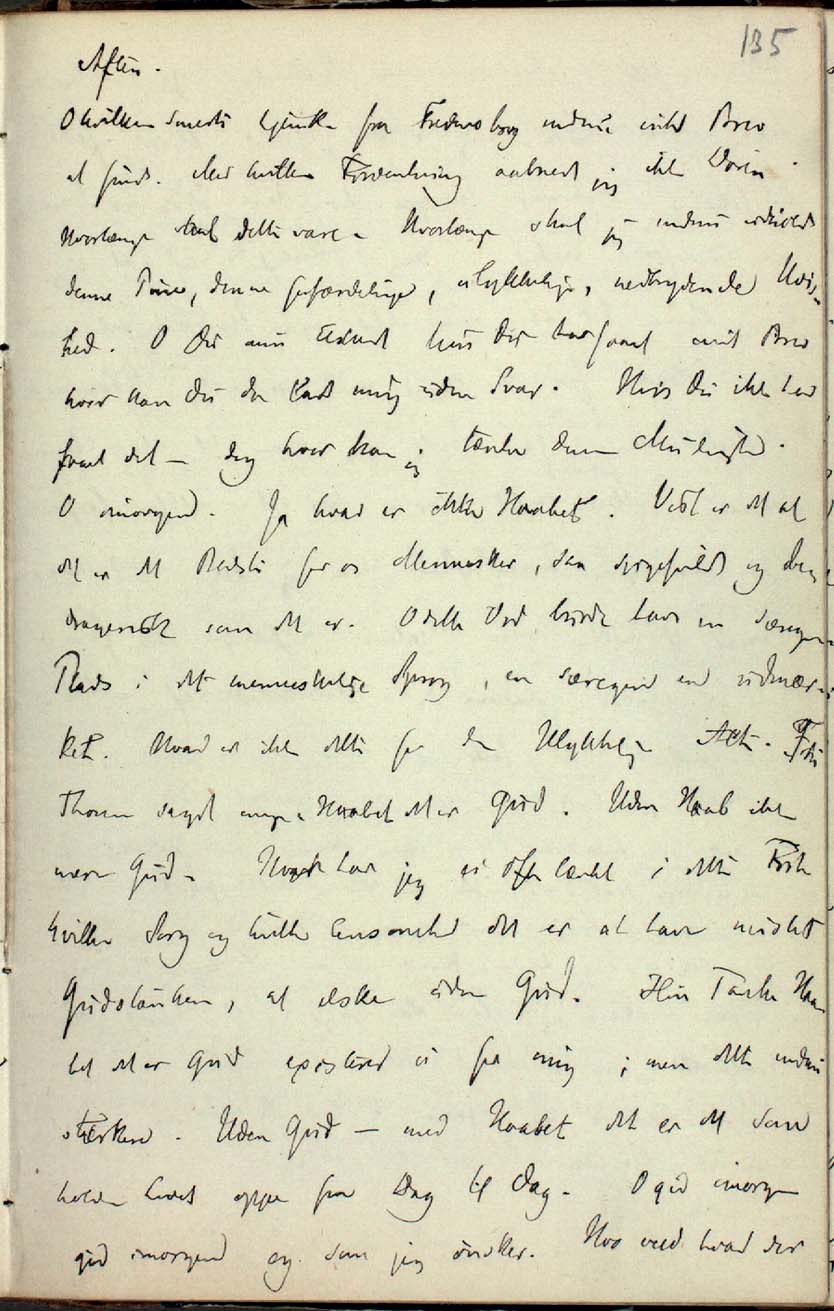 135
Aften.
O hvilken Smerte hjemke fra Fredensborg endnu intet Brev
at finde. Med hvilken Forventning aabnede jeg ikke Døren
Hvorlænge skal dette vare - Hvorlænge skal jeg endnu udholde
denne Pine, denne forfærdelige, ulykkelige, nedbrydende Uvis-
hed. O Du min Elskede hvis Du har faaet mit Brev
hvor kan Du da lade mig uden Svar. Hvis Du ikke har
faaet det - dog hvor kan jeg tænke denne Mulighed.
O imorgen. Ja hvad er ikke Haabet. Vist er det at
det er det Bedste for os Mennesker, saa sørgefuldt og
som det er. O dette Ord burde have en Særegen
Plads i det menneskelige Sprog, en særegen en udmær-
ket. Hvad er ikke dette for den Ulykkelige
Thoren sagde engang Haabet det er Gud. Uden Haab ikke
mere Gud - har jeg ei ofte tænkt i dette
hvilken Sorg og hvilken Eensomhed det er at have mistet
Gudstanken, at elske uden Gud. Hin Tanke Haa-
bet det er Gud existered ei for mig ; men dette endnu
stærkere. Uden Gud — med Haabet det er det som
holder Livet oppe fra Dag til Dag. O gid imorgen
gid imorgen og som jeg ønsker. Hvo veed hvad der